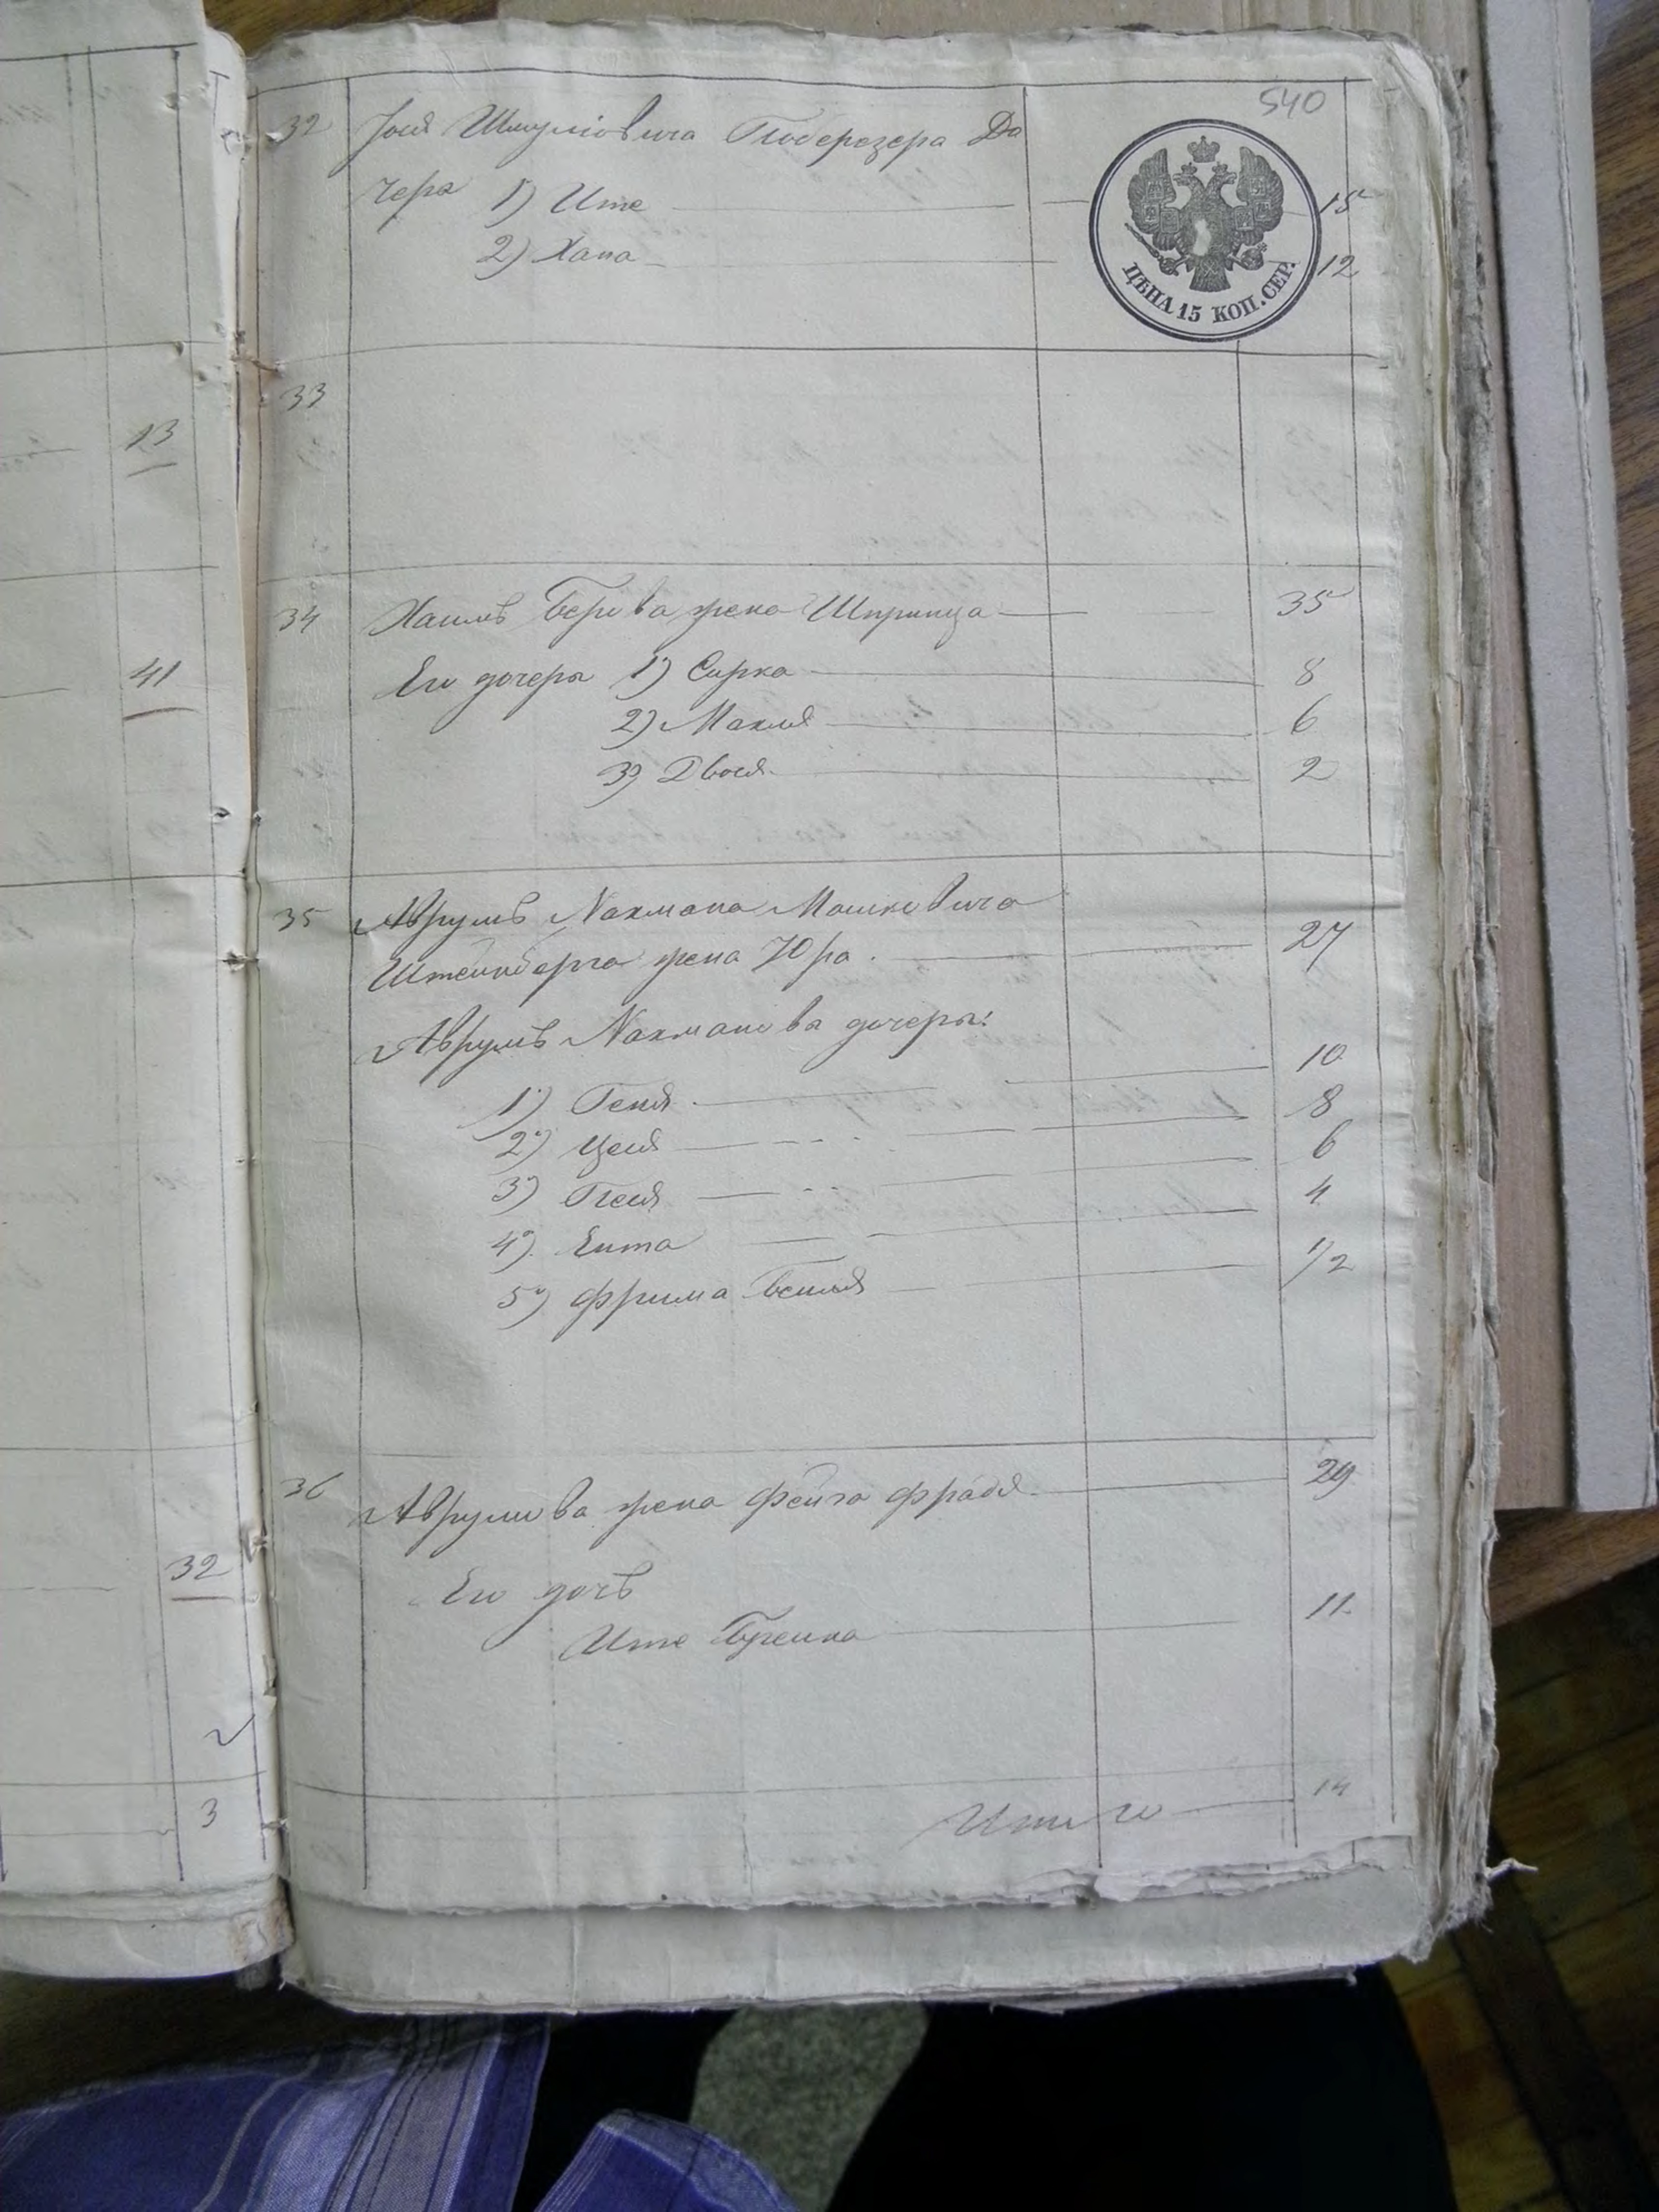 540
32 Іося Шмуліовича Подерезера До
чери 1) Ите 15
2) Хана 12
ЦѢНА 15 КОП. СЕР.
33
13
34 Хаимъ Берова жена Шпринца 35
Его дочери 1) Сурка 8
41
2) Махля 6
3) Двося 2
35 Аврумъ Нахмана Мошковича
Штейнберга жена Юра 27
Аврумъ Нахманова дочери:
1) Геня 10
2) Цеся 8
3) Песя 6
4) Ента 4
5) Фрима Бейля 1/2
36 Аврумова жена Фейга Фрадя 29
32
Его дочь
Ите Брейна 11
3
Итого 14